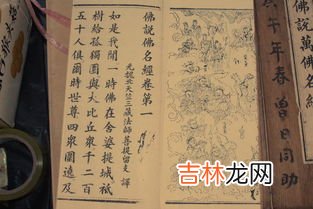 佛說佛名經
午年春
佛說佛名經卷第一
元魏北天竺三藏法師菩提留支 譯
如是我聞一時佛在舍婆提城祇
樹給孤獨園與大比丘眾千二百
五十人俱爾時世尊四眾圍遶及
吉林龙网